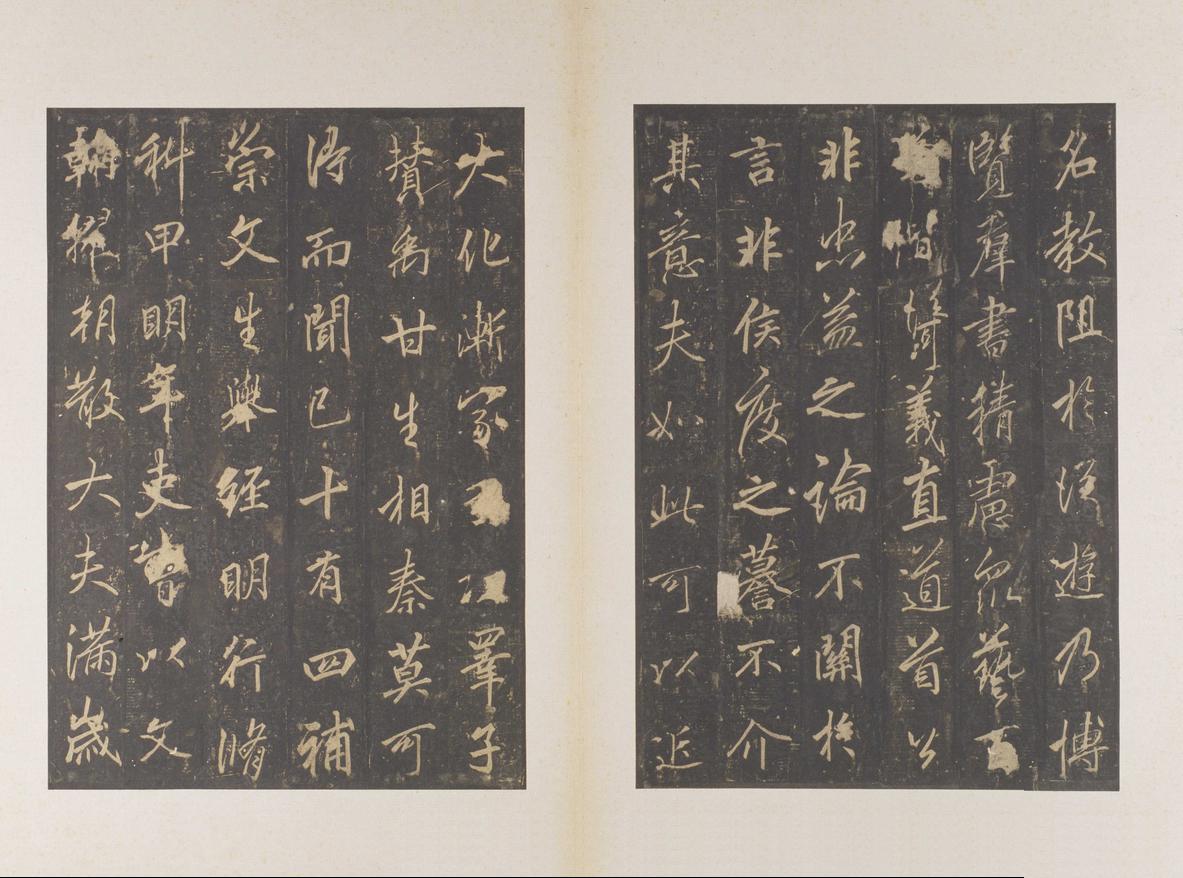 名教阻於從遊乃博
覽羣書精慮眾藝百
偕義直道首公
非忠益之論不關於
言非侯度之謩不介
其意夫如此可以近
大化漸家睪子
贊禹甘生相秦莫可
得而聞已十有四補
崇文生舉經明行脩
科甲明年吏曹以文
翰擢朝散大夫滿歲